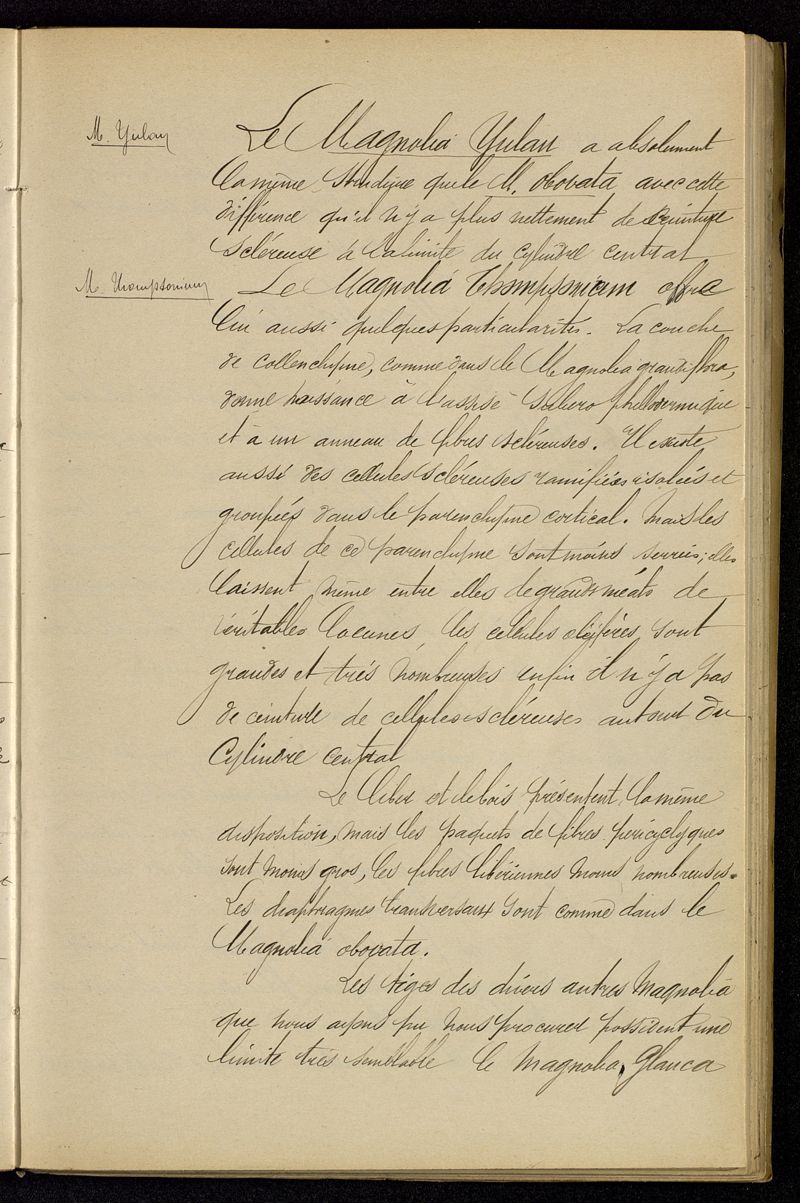 M. Yulan
Le Magnolia Yulan a absolument
la même structure que le M. obovata avec cette
différence qu'il n'y a plus nettement de ceinture
scléreuse à la limite du cylindre central
M. Thompsonium
Le Magnolia Thompsonium offre
lui aussi quelques particularités. La couche
de collenchyme, comme dans le Magnolia grandiflora,
donne naissance à l'assise subero phellodermique
et à un anneau de fibres scléreuses. Il existe
aussi des cellules scléreuses ramifiées isolées et
groupées dans le parenchyme cortical. Mais les
cellules de ce parenchyme sont moins serrées; elles
laissent même entre elles de grands méats de
véritables lacunes, les cellules oléifères sont
grandes et très nombreuses enfin il n'y a pas
de ceinture de cellules scléreuses autour du
Cylindre central
Le liber et le bois présentent la même
disposition, mais les paquets de fibres péricycliques
sont moins gros, les fibres libériennes moins nombreuses.
Les diaphragmes transversaux sont comme dans le
Magnolia obovata.
Les tiges des divers autres Magnolia
que nous ayons pu nous procurer possèdent une
limite très semblable le Magnolia Glauca